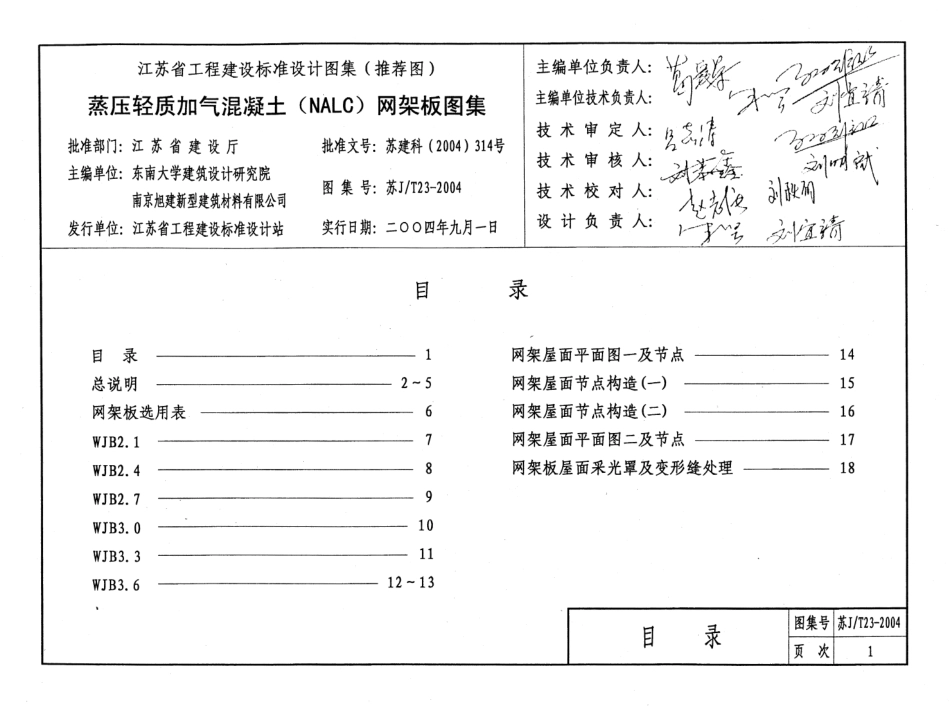 江苏省工程建设标准设计图集(推荐图)
蒸压轻质加气混凝土(NALC)网架板图集
批准部门: 江苏省建设厅 批准文号: 苏建科(2004)314号
主编单位: 东南大学建筑设计研究院
南京旭建新型建筑材料有限公司
图集号: 苏J/T23-2004
发行单位: 江苏省工程建设标准设计站 实行日期: 二〇〇四年九月一日
主编单位负责人:
主编单位技术负责人: 刘宜靖
技术审定人: 吕志涛
技术审核人: 刘明斌
技术校对人:
设计负责人: 刘宜靖
目 录
目 录 1
总说明 2~5
网架板选用表 6
WJB2.1 7
WJB2.4 8
WJB2.7 9
WJB3.0 10
WJB3.3 11
WJB3.6 12~13
网架屋面平面图一及节点 14
网架屋面节点构造(一) 15
网架屋面节点构造(二) 16
网架屋面平面图二及节点 17
网架板屋面采光罩及变形缝处理 18
目 录
图集号 苏J/T23-2004
页 次 1